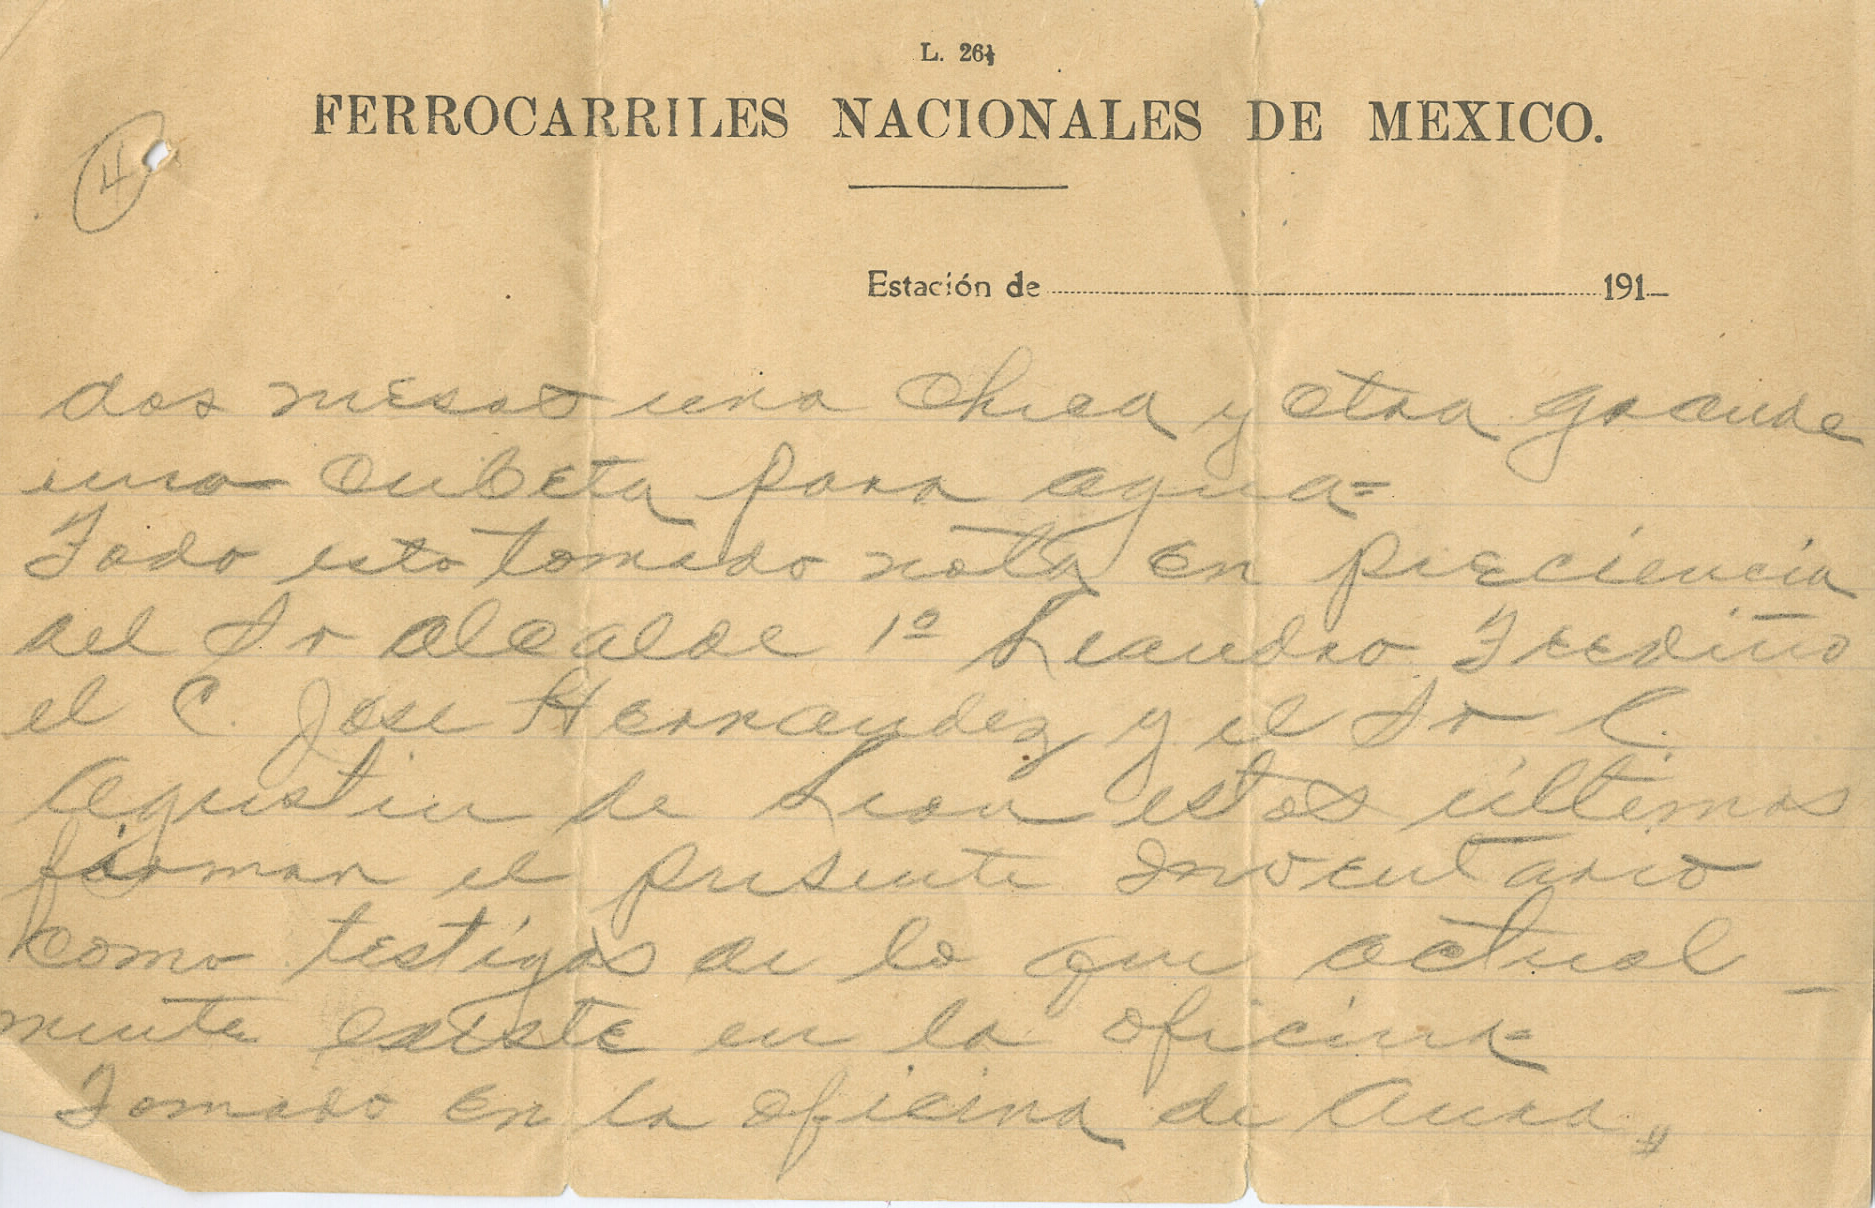 L. 264
FERROCARRILES NACIONALES DE MEXICO.
4
Estación de 191
dos mesas una chica y otra grande
una cubeta para agua=
Todo esto tomado nota en preciencia
del Sr alcalde 1º Leandro Treviño
el C. Jose Hernandez y el Sr C.
Agustin de Leon estos últimos
firman el presente inventario
como testigos de lo que actual_
mente existe en la oficina=
Tomado en la oficina de